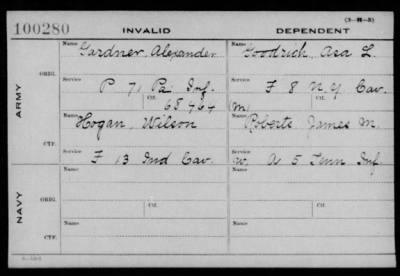 (3-H-5)
100280 INVALID DEPENDENT
Name Name
Gardner, Alexander Goodrich, Asa L.
ORIG.
Service Service
P 71 Pa Inf. F 8 N.Y. Cav.
Ctf. Ctf.
68464 (M)
ARMY
Name Name
Hogan, Wilson Roberts James M.
CTF.
Service Service
F 13 Ind Cav. W. A 5 Tenn Inf.
Name Name
ORIG. Ctf. Ctf.
NAVY
Name Name
CTF.